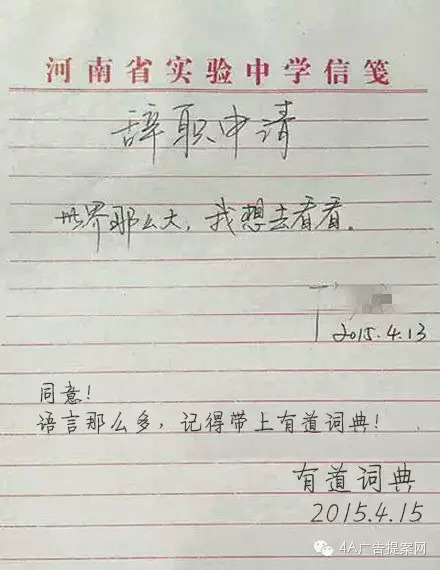 河南省实验中学信笺
辞职申请
世界那么大，我想去看看.
2015.4.13
同意!
语言那么多，记得带上有道词典!
有道词典
2015.4.15
4A广告提案网